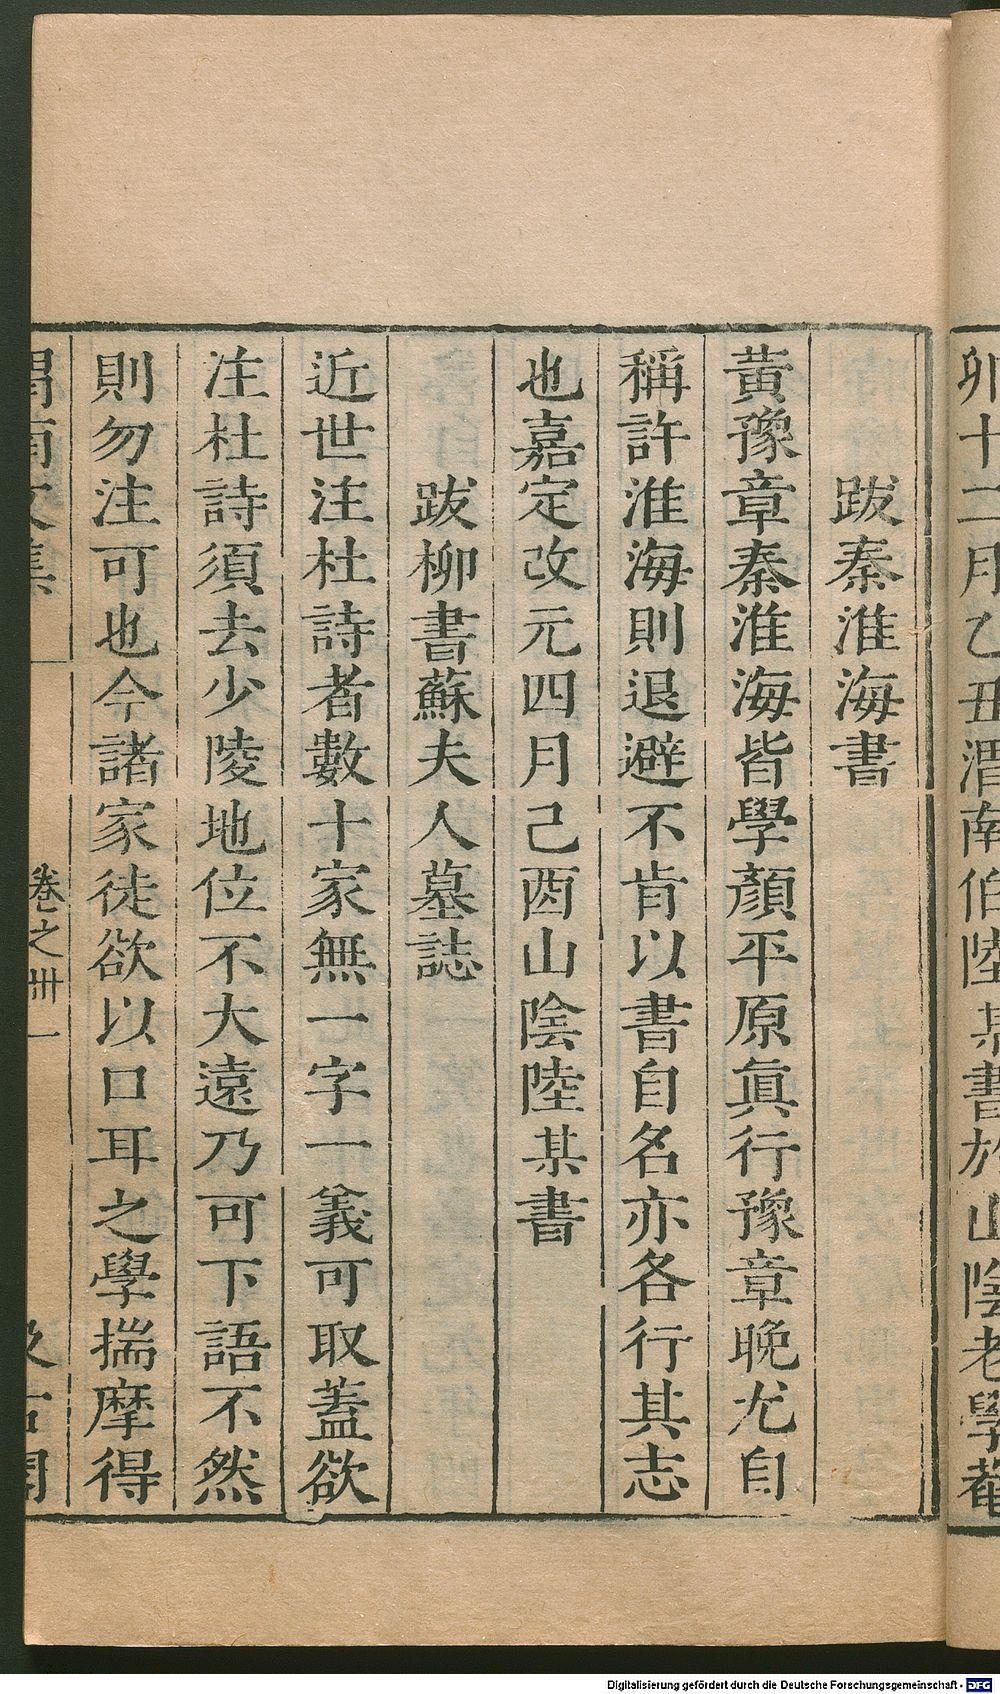 卯十二月乙丑渭南伯陸某書於山陰老學菴
跋秦淮海書
黃豫章秦淮海皆學顏平原眞行豫章晚尤自
稱許淮海則退避不肯以書自名亦各行其志
也嘉定改元四月己酉山陰陸某書
跋柳書蘇夫人墓誌
近世注杜詩者數十家無一字一義可取蓋欲
注杜詩須去少陵地位不大遠乃可下語不然
則勿注可也今諸家徒欲以口耳之學揣摩得
渭南文集 卷之卅一 汲古閣
Digitalisierung gefördert durch die Deutsche Forschungsgemeinschaft - DFG